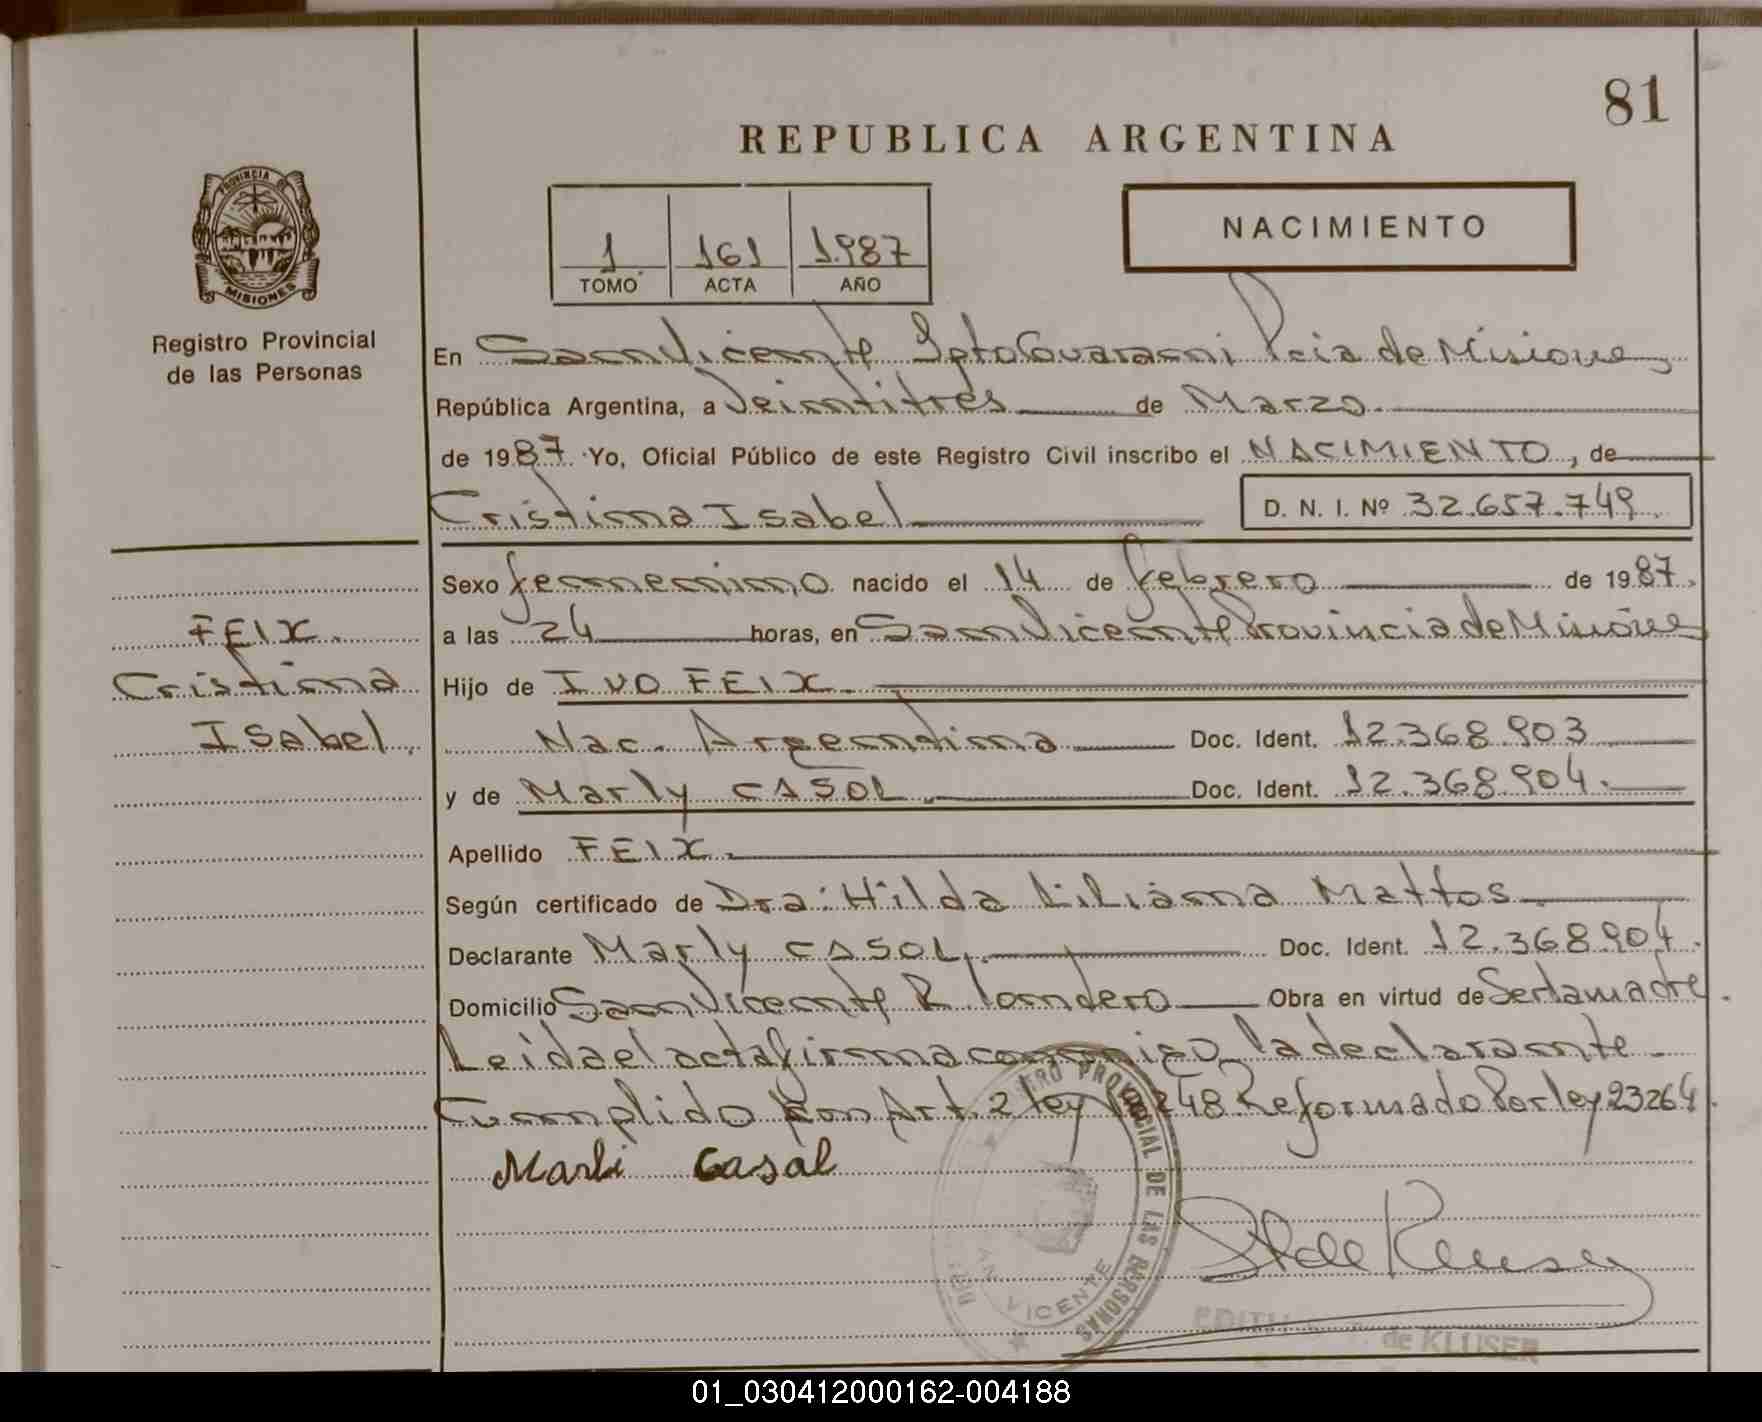 81
REPUBLICA ARGENTINA
PROVINCIA DE
MISIONES
1 161 1.987
TOMO ACTA AÑO
NACIMIENTO
Registro Provincial
de las Personas
En San Vicente Dpto Guaraní Pcia de Misiones
República Argentina, a Veintitres de Marzo.
de 1987. Yo, Oficial Público de este Registro Civil inscribo el NACIMIENTO, de
Cristina Isabel D. N. I. Nº 32.657.749.
Sexo femenino nacido el 14 de febrero de 1987.
a las 24 horas, en San Vicente Provincia de Misiones
Hijo de IVO FEIX.
Nac. Argentina Doc. Ident. 12.368.903
y de Marly CASOL. Doc. Ident. 12.368.904.
Apellido FEIX.
Según certificado de Dra: Hilda Liliana Mattos.
Declarante Marly CASOL. Doc. Ident. 12.368.904.
Domicilio San Vicente R. Obra en virtud de Ser la madre.
Leida el acta firma conmigo la declarante.
Cumplido con Art. 2 ley 18248 Reformado Por ley 23264.
Marli Casal
FEIX.
Cristina
Isabel.
REGISTRO PROVINCIAL DE LAS PERSONAS
SAN VICENTE
EDITH de KLUSER
01_030412000162-004188